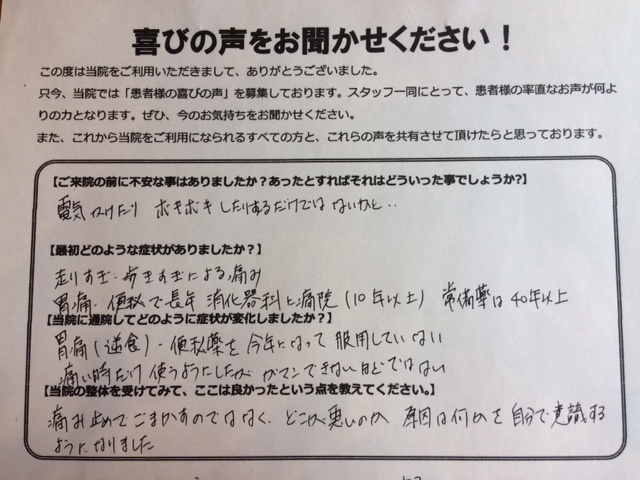 喜びの声をお聞かせください！
この度は当院をご利用いただきまして、ありがとうございました。
只今、当院では「患者様の喜びの声」を募集しております。スタッフ一同にとって、患者様の率直なお声が何よ
りの力となります。ぜひ、今のお気持ちをお聞かせください。
また、これから当院をご利用になられるすべての方と、これらの声を共有させて頂けたらと思っております。
【ご来院の前に不安な事はありましたか？あったとすればそれはどういった事でしょうか？】
電気かけたり ボキボキしたりするだけではないかと‥
【最初どのような症状がありましたか？】
走りすぎ・歩きすぎによる痛み
胃痛・便秘で長年 消化器科に病院（10年以上） 常備薬は40年以上
【当院に通院してどのように症状が変化しましたか？】
胃痛（逆食）・便秘薬を今年になって服用していない
痛い時だけ使うようにしたが ガマンできないほどではない
【当院の整体を受けてみて、ここは良かったという点を教えてください。】
痛み止めでごまかすのではなく、どこが悪いのか 原因は何かを自分で意識する
ようになりました